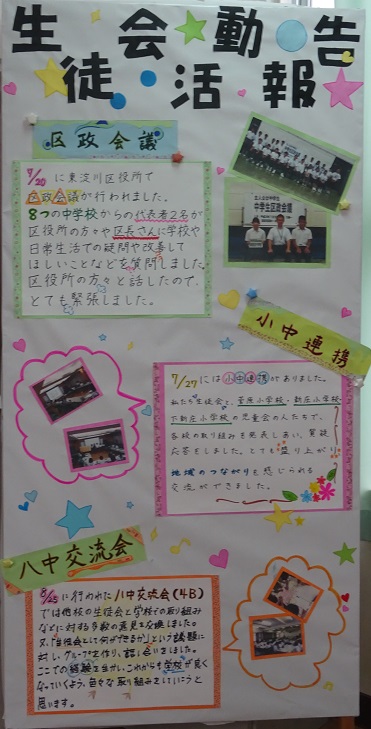 生徒会活動報告
区政会議
7/20 に東淀川区役所で
区政会議が行われました。
8つの中学校からの代表者2名が
区役所の方々や区長さんに学校や
日常生活での疑問や改善して
ほしいことなどを質問しました。
区役所の方々と話したので、
とても緊張しました。
中学生区政会議
小中連携
7/27には小中連携がありました。
私たち生徒会と、菅原小学校・新庄小学校・
下新庄小学校の児童会の人たちで、
各校の取り組みを発表しあい、質疑
応答をしました。とても盛り上がり
地域のつながりを感じられる
交流ができました。
八中交流会
8/25に行われた八中交流会(4B)
では他校の生徒会と学校での取り組み
などに対する多数の意見を交換しました。
又、「生徒会として何ができるか」という議題に
対し、グループを作り、話し合いをしました。
ここでの経験を生かし、これからも学校が良く
なっていくよう、色々な取り組みをしていこうと
思います。